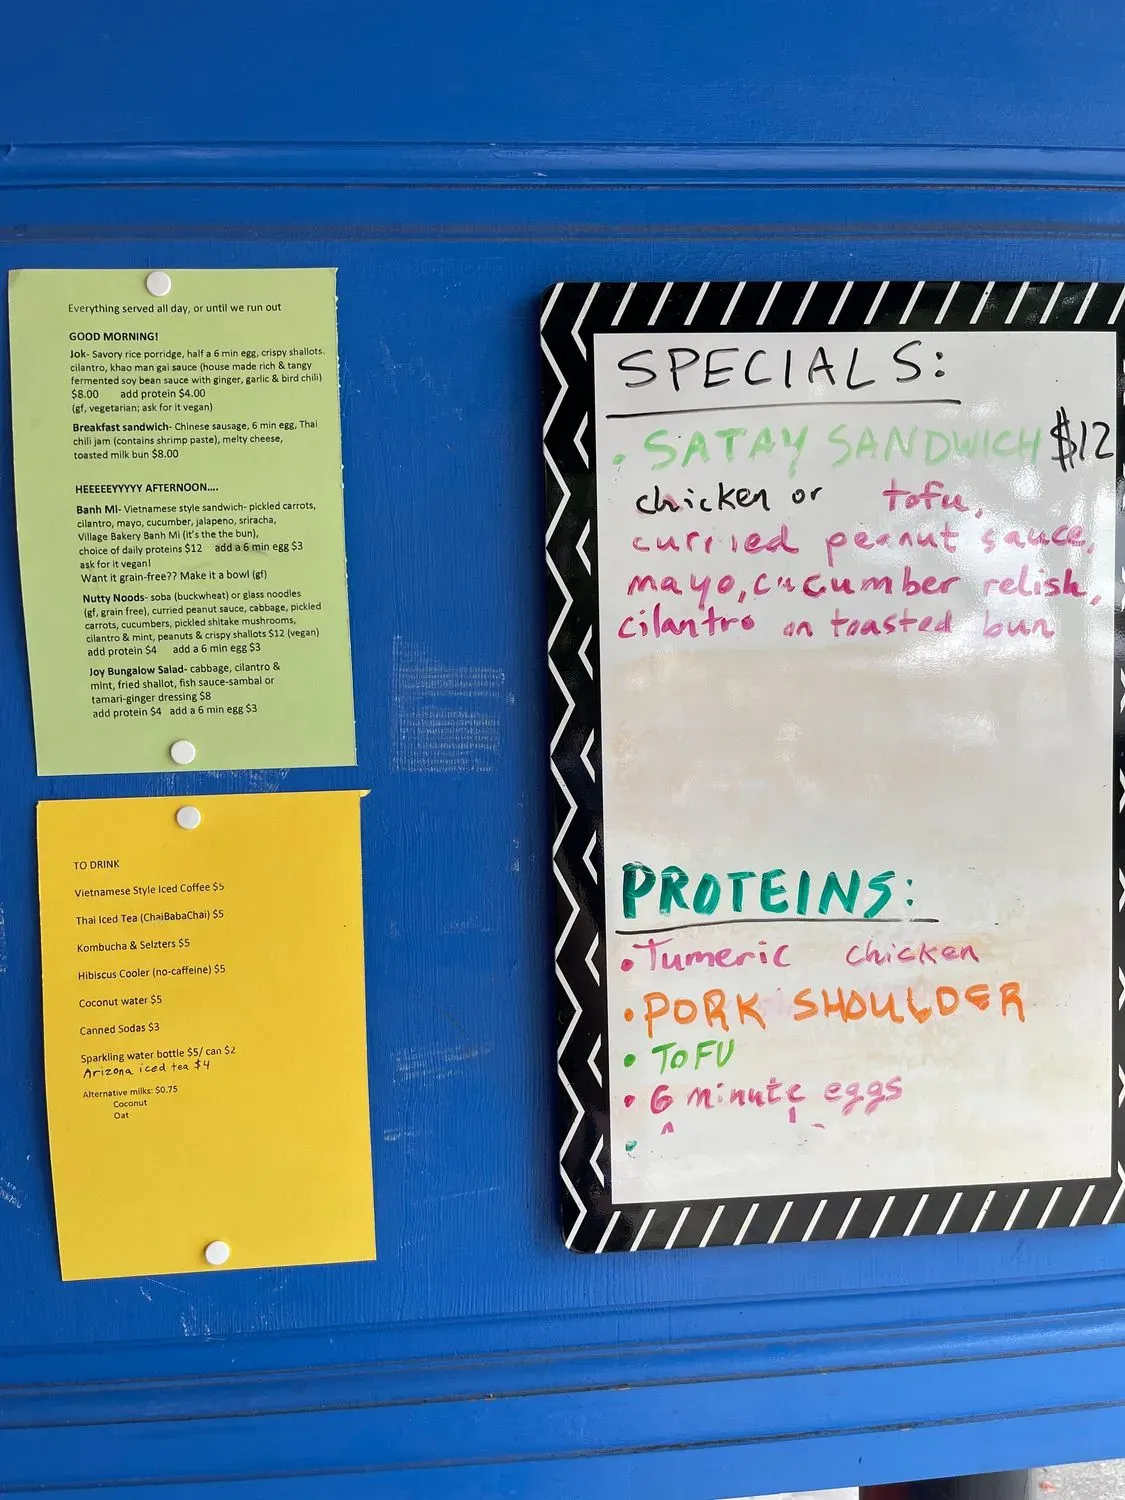 Everything served all day, or until we run out
GOOD MORNING!
Jok- Savory rice porridge, half a 6 min egg, crispy shallots.
cilantro, khao man gai sauce (house made rich & tangy
fermented soy bean sauce with ginger, garlic & bird chili)
$8.00 add protein $4.00
(gf, vegetarian; ask for it vegan)
Breakfast sandwich- Chinese sausage, 6 min egg, Thai
chili jam (contains shrimp paste), melty cheese,
toasted milk bun $8.00
HEEEEEYYYYY AFTERNOON....
Banh Mi- Vietnamese style sandwich- pickled carrots,
cilantro, mayo, cucumber, jalapeno, sriracha,
Village Bakery Banh Mi (it's the the bun),
choice of daily proteins $12 add a 6 min egg $3
ask for it vegan!
Want it grain-free?? Make it a bowl (gf)
Nutty Noods- soba (buckwheat) or glass noodles
(gf, grain free), curried peanut sauce, cabbage, pickled
carrots, cucumbers, pickled shitake mushrooms,
cilantro & mint, peanuts & crispy shallots $12 (vegan)
add protein $4 add a 6 min egg $3
Joy Bungalow Salad- cabbage, cilantro &
mint, fried shallot, fish sauce-sambal or
tamari-ginger dressing $8
add protein $4 add a 6 min egg $3
TO DRINK
Vietnamese Style Iced Coffee $5
Thai Iced Tea (ChaiBabaChai) $5
Kombucha & Selzters $5
Hibiscus Cooler (no-caffeine) $5
Coconut water $5
Canned Sodas $3
Sparkling water bottle $5/ can $2
Arizona iced tea $4
Alternative milks: $0.75
Coconut
Oat
SPECIALS:
• SATAY SANDWICH $12
chicken or tofu,
curried peanut sauce,
mayo, cucumber relish,
cilantro on toasted bun
PROTEINS:
• Tumeric chicken
• PORK SHOULDER
• TOFU
• 6 minute eggs